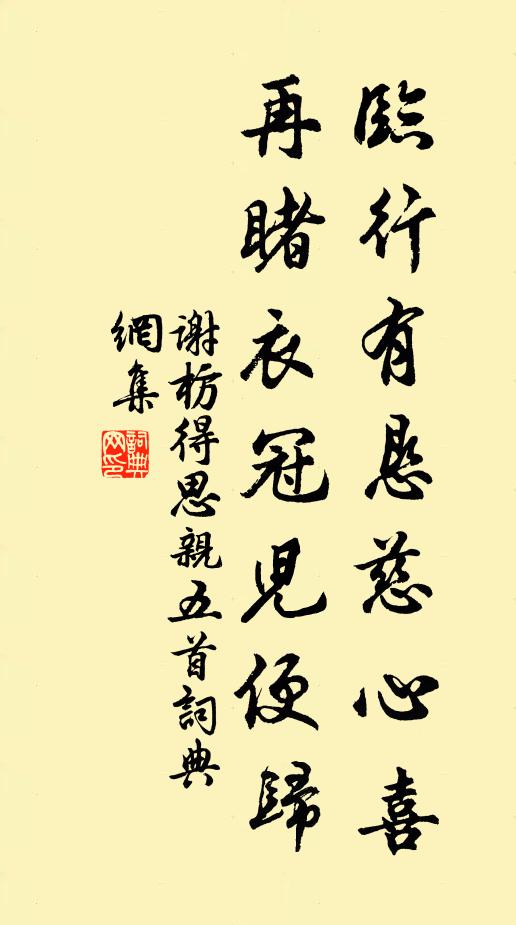 臨行有恳慈心喜
再睹衣冠兒便歸
谢枋得思親五首詞典
網集
詞典
网印